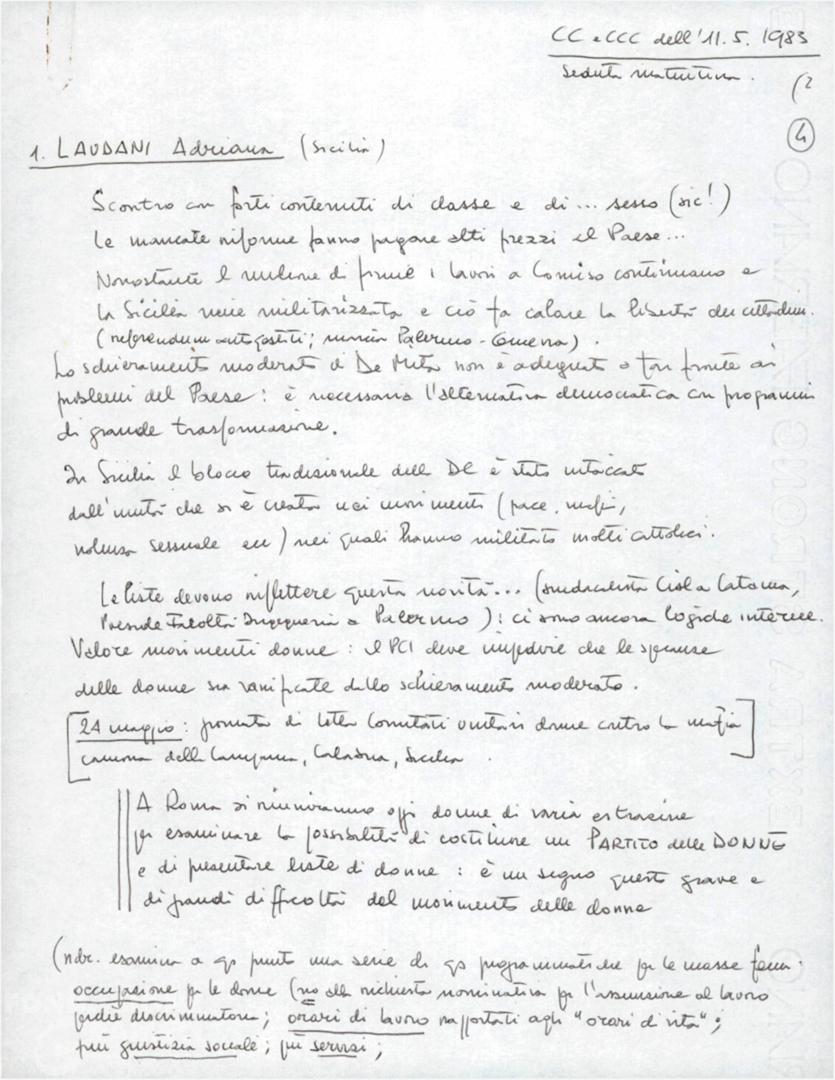 CC e CCC dell'11.5.1983
seduta mattutina.
(2
4
1. LAUDANI Adriana (Sicilia)
Scontro con forti contenuti di classe e di... sesso (sic!)
Le mancate riforme fanno pagare alti prezzi al Paese...
Nonostante il milione di firme i lavori a Comiso continuano e
la Sicilia viene militarizzata e ciò fa calare la libertà dei cittadini.
(referendum autogestiti; marcia Palermo-Ginevra).
Lo schieramento moderato di De Mita non è adeguato a far fronte ai
problemi del Paese: è necessaria l'alternativa democratica con programmi
di grande trasformazione.
In Sicilia il blocco tradizionale della DC è stato intaccato
dall'unità che si è creata nei movimenti (pace, mafia,
violenza sessuale ecc) nei quali hanno militato molti cattolici.
Le liste devono riflettere questa novità... (sindacalista Cisl a Catania,
Preside Facoltà Ingegneria a Palermo): ci sono ancora logiche interne.
Valore movimenti donne: il PCI deve impedire che le speranze
delle donne sia vanificate dallo schieramento moderato.
[24 maggio: giornata di lotta Comitati unitari donne contro la mafia
camorra della Campania, Calabria, Sicilia.]
A Roma si riuniranno oggi donne di varia estrazione
per esaminare la possibilità di costituire un PARTITO delle DONNE
e di presentare liste di donne: è un segno questo grave e
di grandi difficoltà del movimento delle donne
(ndr. esamina a qs punto una serie di qs programmatiche per le masse femm.
occupazione per le donne (no alla richiesta nominativa per l'assunzione al lavoro
perché discriminatoria; orari di lavoro rapportati agli "orari di vita";
più giustizia sociale; più servizi;